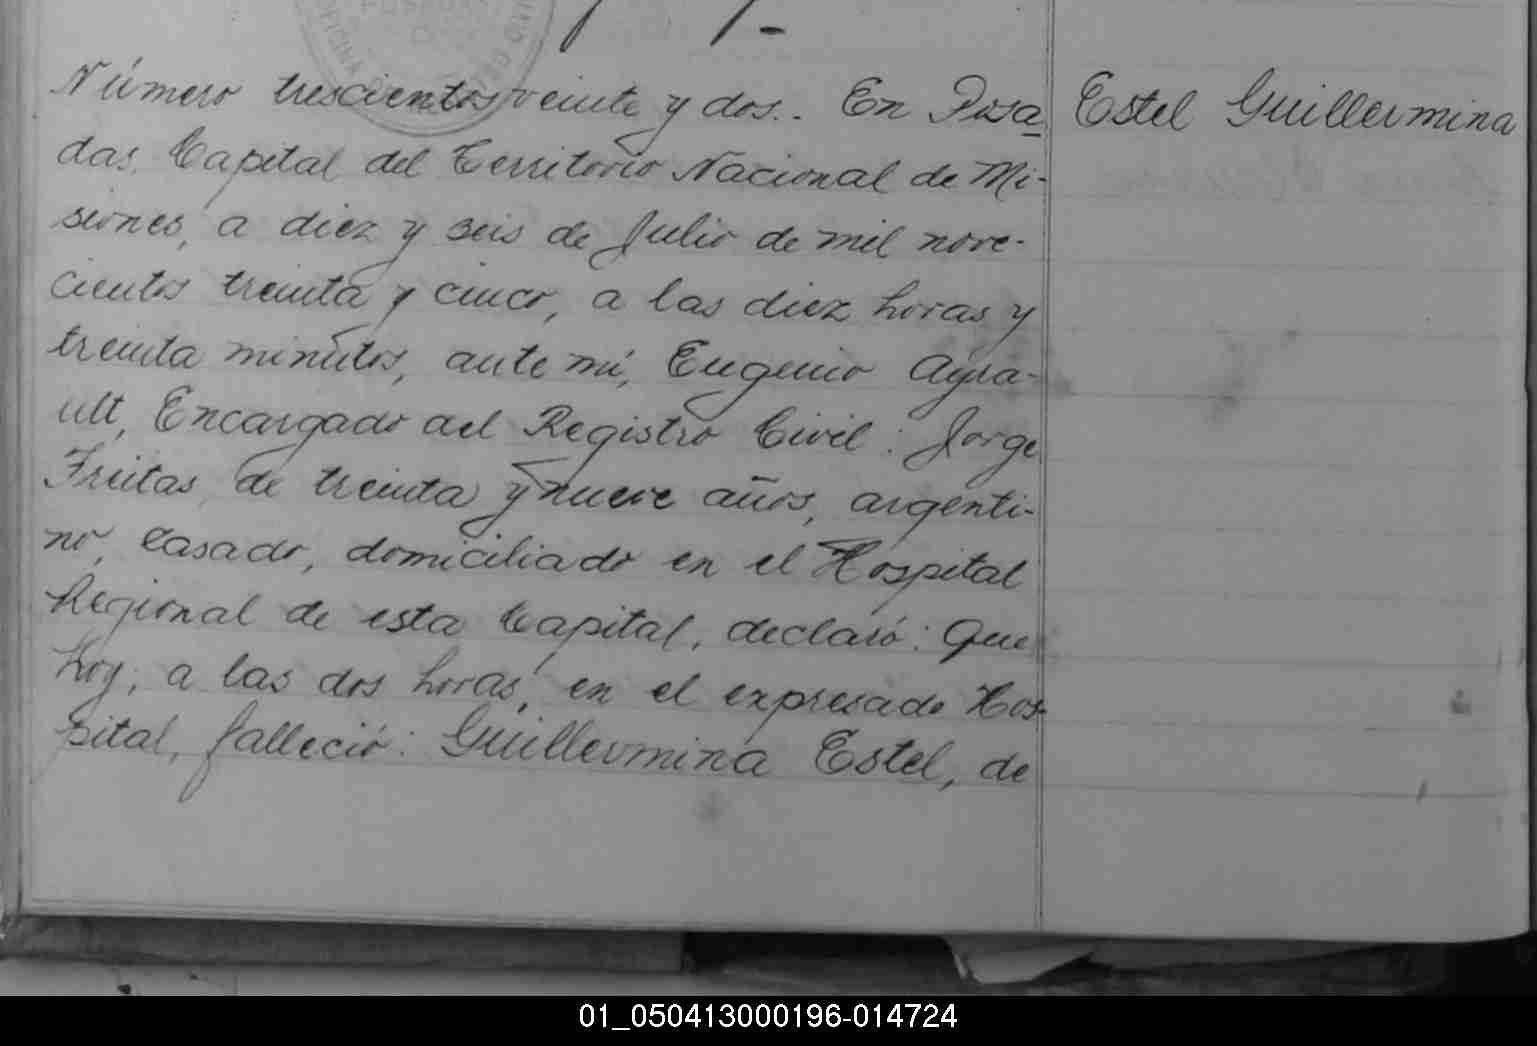 Número trescientos veinte y dos.. En Posa
das, Capital del Territorio Nacional de Mi-
siones, a diez y seis de Julio de mil nove-
cientos treinta y cinco, a las diez horas y
treinta minutos, ante mí, Eugenio Ayra-
ult, Encargado del Registro Civil: Jorge
Freitas, de treinta y nueve años, argenti-
no, casado, domiciliado en el Hospital
Regional de esta Capital, declaró: Que
hoy, a las dos horas, en el expresado Hos-
pital, falleció: Guillermina Estel, de
Estel Guillermina
01_050413000196-014724